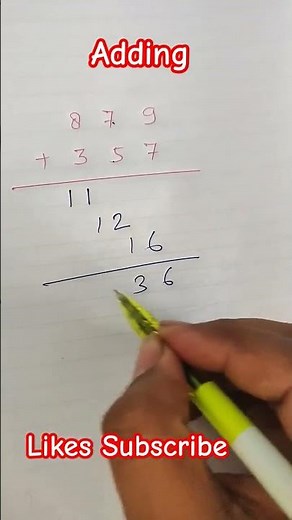 Adding
8 7 9
+ 3 5 7
11
12
16
36
Likes Subscribe